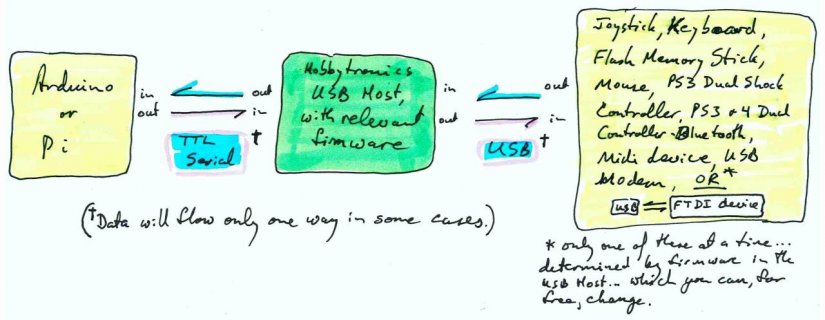 Arduino
or
Pi
in
out
out
in
TTL
Serial
†
Hobbytronics
USB Host,
with relevant
firmware
in
out
out
in
USB
†
Joystick, Keyboard,
Flash Memory Stick,
Mouse, PS3 Dual Shock
Controller, PS3 & 4 Dual
Controller-Bluetooth,
Midi device, USB
Modem, OR*
USB
FTDI device
(†Data will flow only one way in some cases.)
* only one of these at a time...
determined by firmware in the
USB Host... which you can, for
free, change.